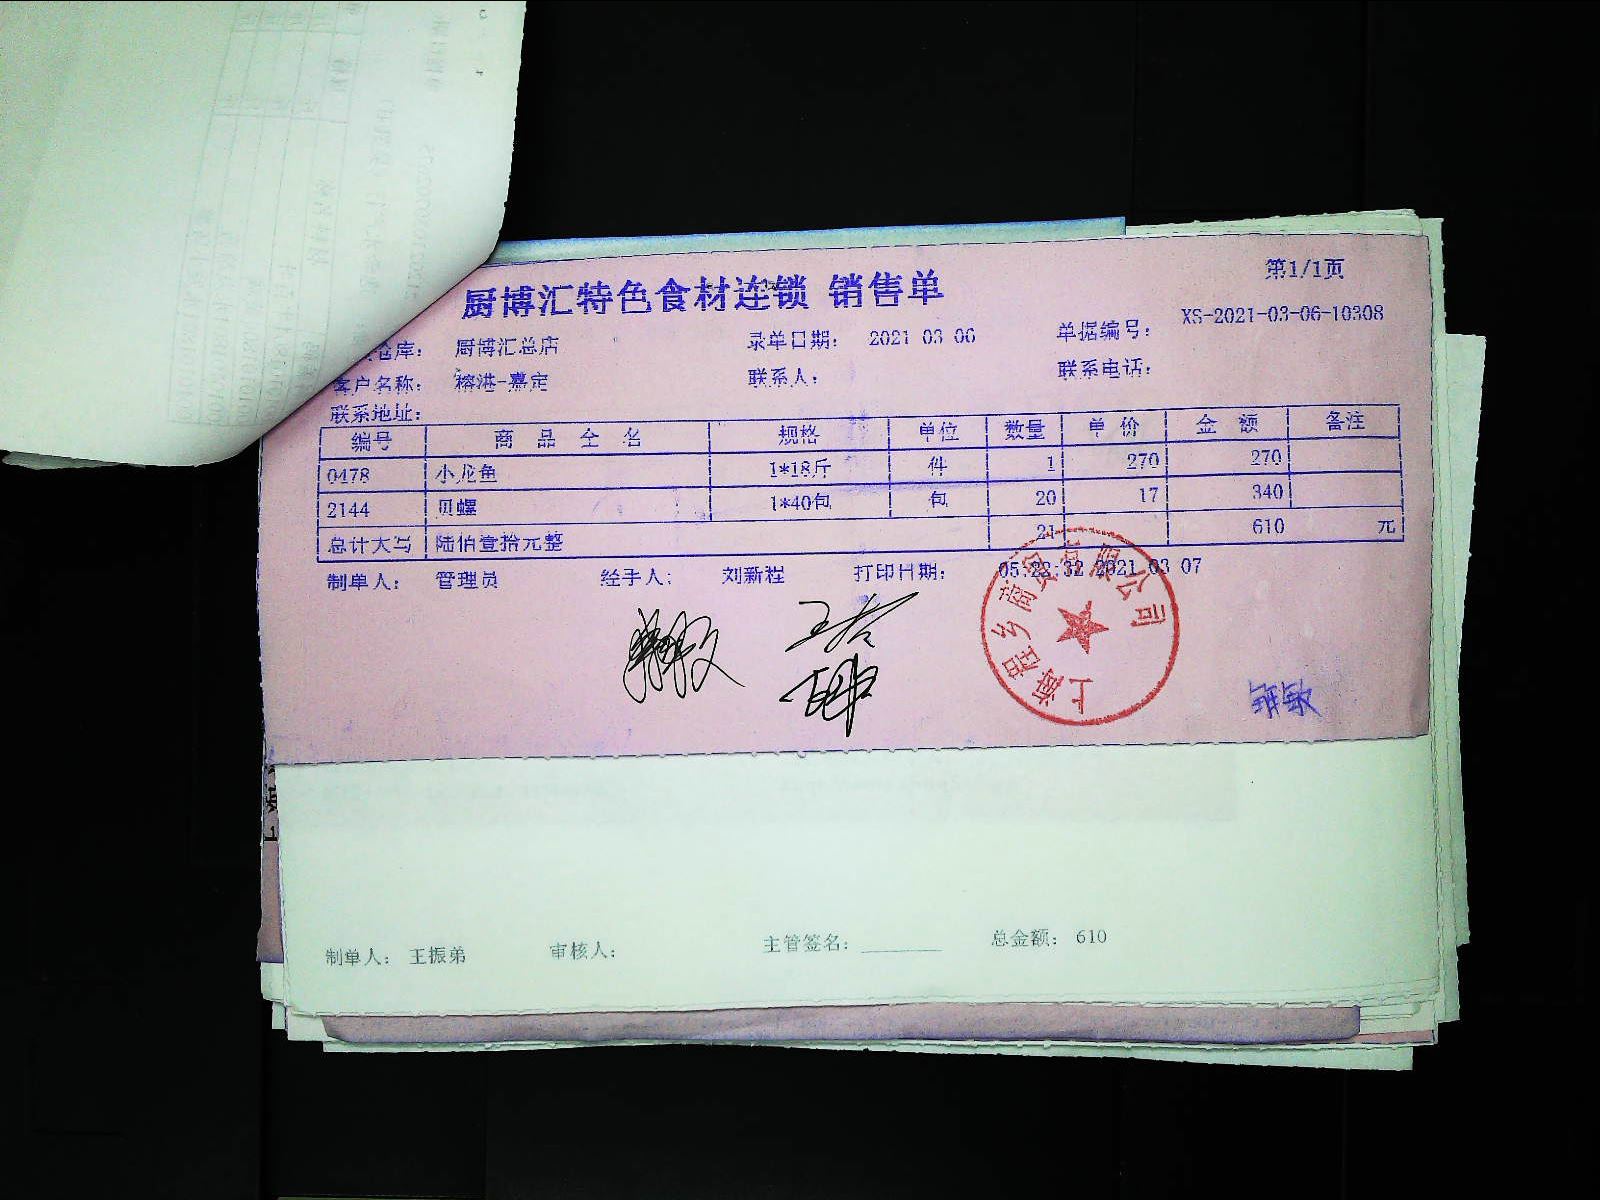 厨博汇特色食材连锁 销售单
第1/1页
仓库: 厨博汇总店 录单日期: 2021 03 06 单据编号: XS-2021-03-06-10308
客户名称: 榕港-嘉定 联系人: 联系电话:
联系地址:
编号 商品全名 规格 单位 数量 单价 金额 备注
0478 小龙鱼 1*18斤 件 1 270 270
2144 贝螺 1*40包 包 20 17 340
总计大写 陆佰壹拾元整 21 610 元
制单人: 管理员 经手人: 刘新程 打印日期: 05:22:32 2021 03 07
上海 乡商贸有限公司
制单人: 王振弟 审核人: 主管签名: 总金额: 610